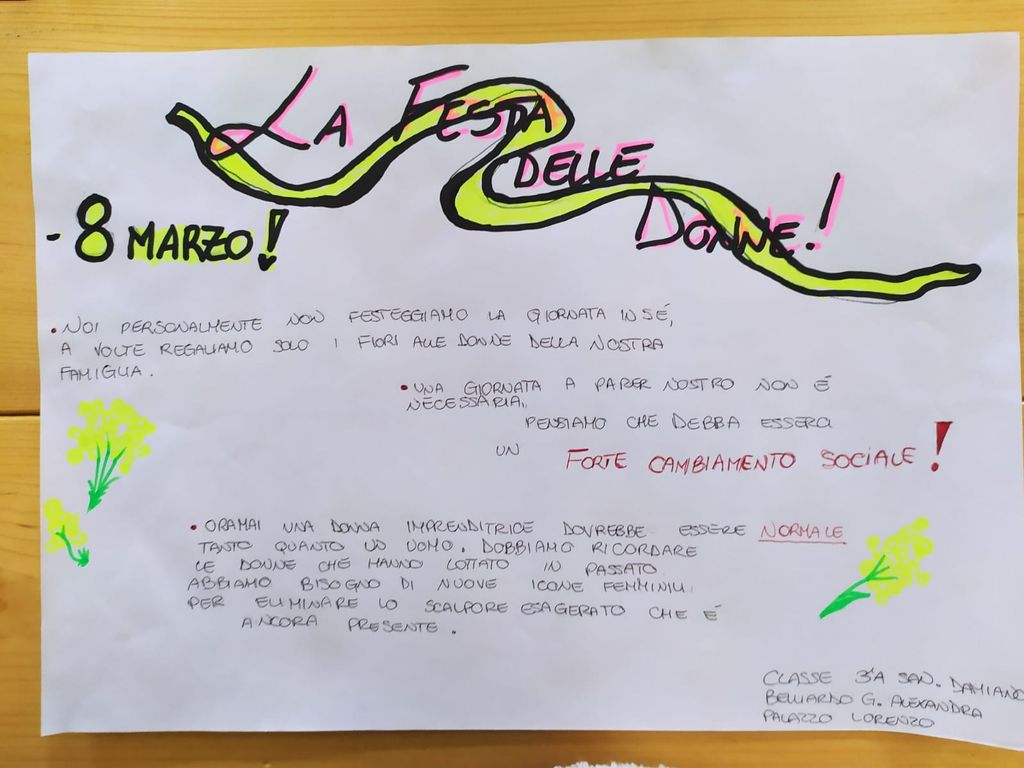 LA FESTA
DELLE
DONNE!
- 8 MARZO!
• NOI PERSONALMENTE NON FESTEGGIAMO LA GIORNATA IN SÉ,
A VOLTE REGALIAMO SOLO I FIORI ALLE DONNE DELLA NOSTRA
FAMIGLIA.
• UNA GIORNATA A PARER NOSTRO NON É
NECESSARIA,
PENSIAMO CHE DEBBA ESSERCI
UN FORTE CAMBIAMENTO SOCIALE!
• ORAMAI UNA DONNA IMPRENDITRICE DOVREBBE ESSERE NORMALE
TANTO QUANTO UN UOMO. DOBBIAMO RICORDARE
LE DONNE CHE HANNO LOTTATO IN PASSATO.
ABBIAMO BISOGNO DI NUOVE ICONE FEMMINILI
PER ELIMINARE LO SCALPORE ESAGERATO CHE É
ANCORA PRESENTE.
CLASSE 3ªA SAN. DAMIANO
BELLIARDO G. ALEXANDRA
PALAZZO LORENZO